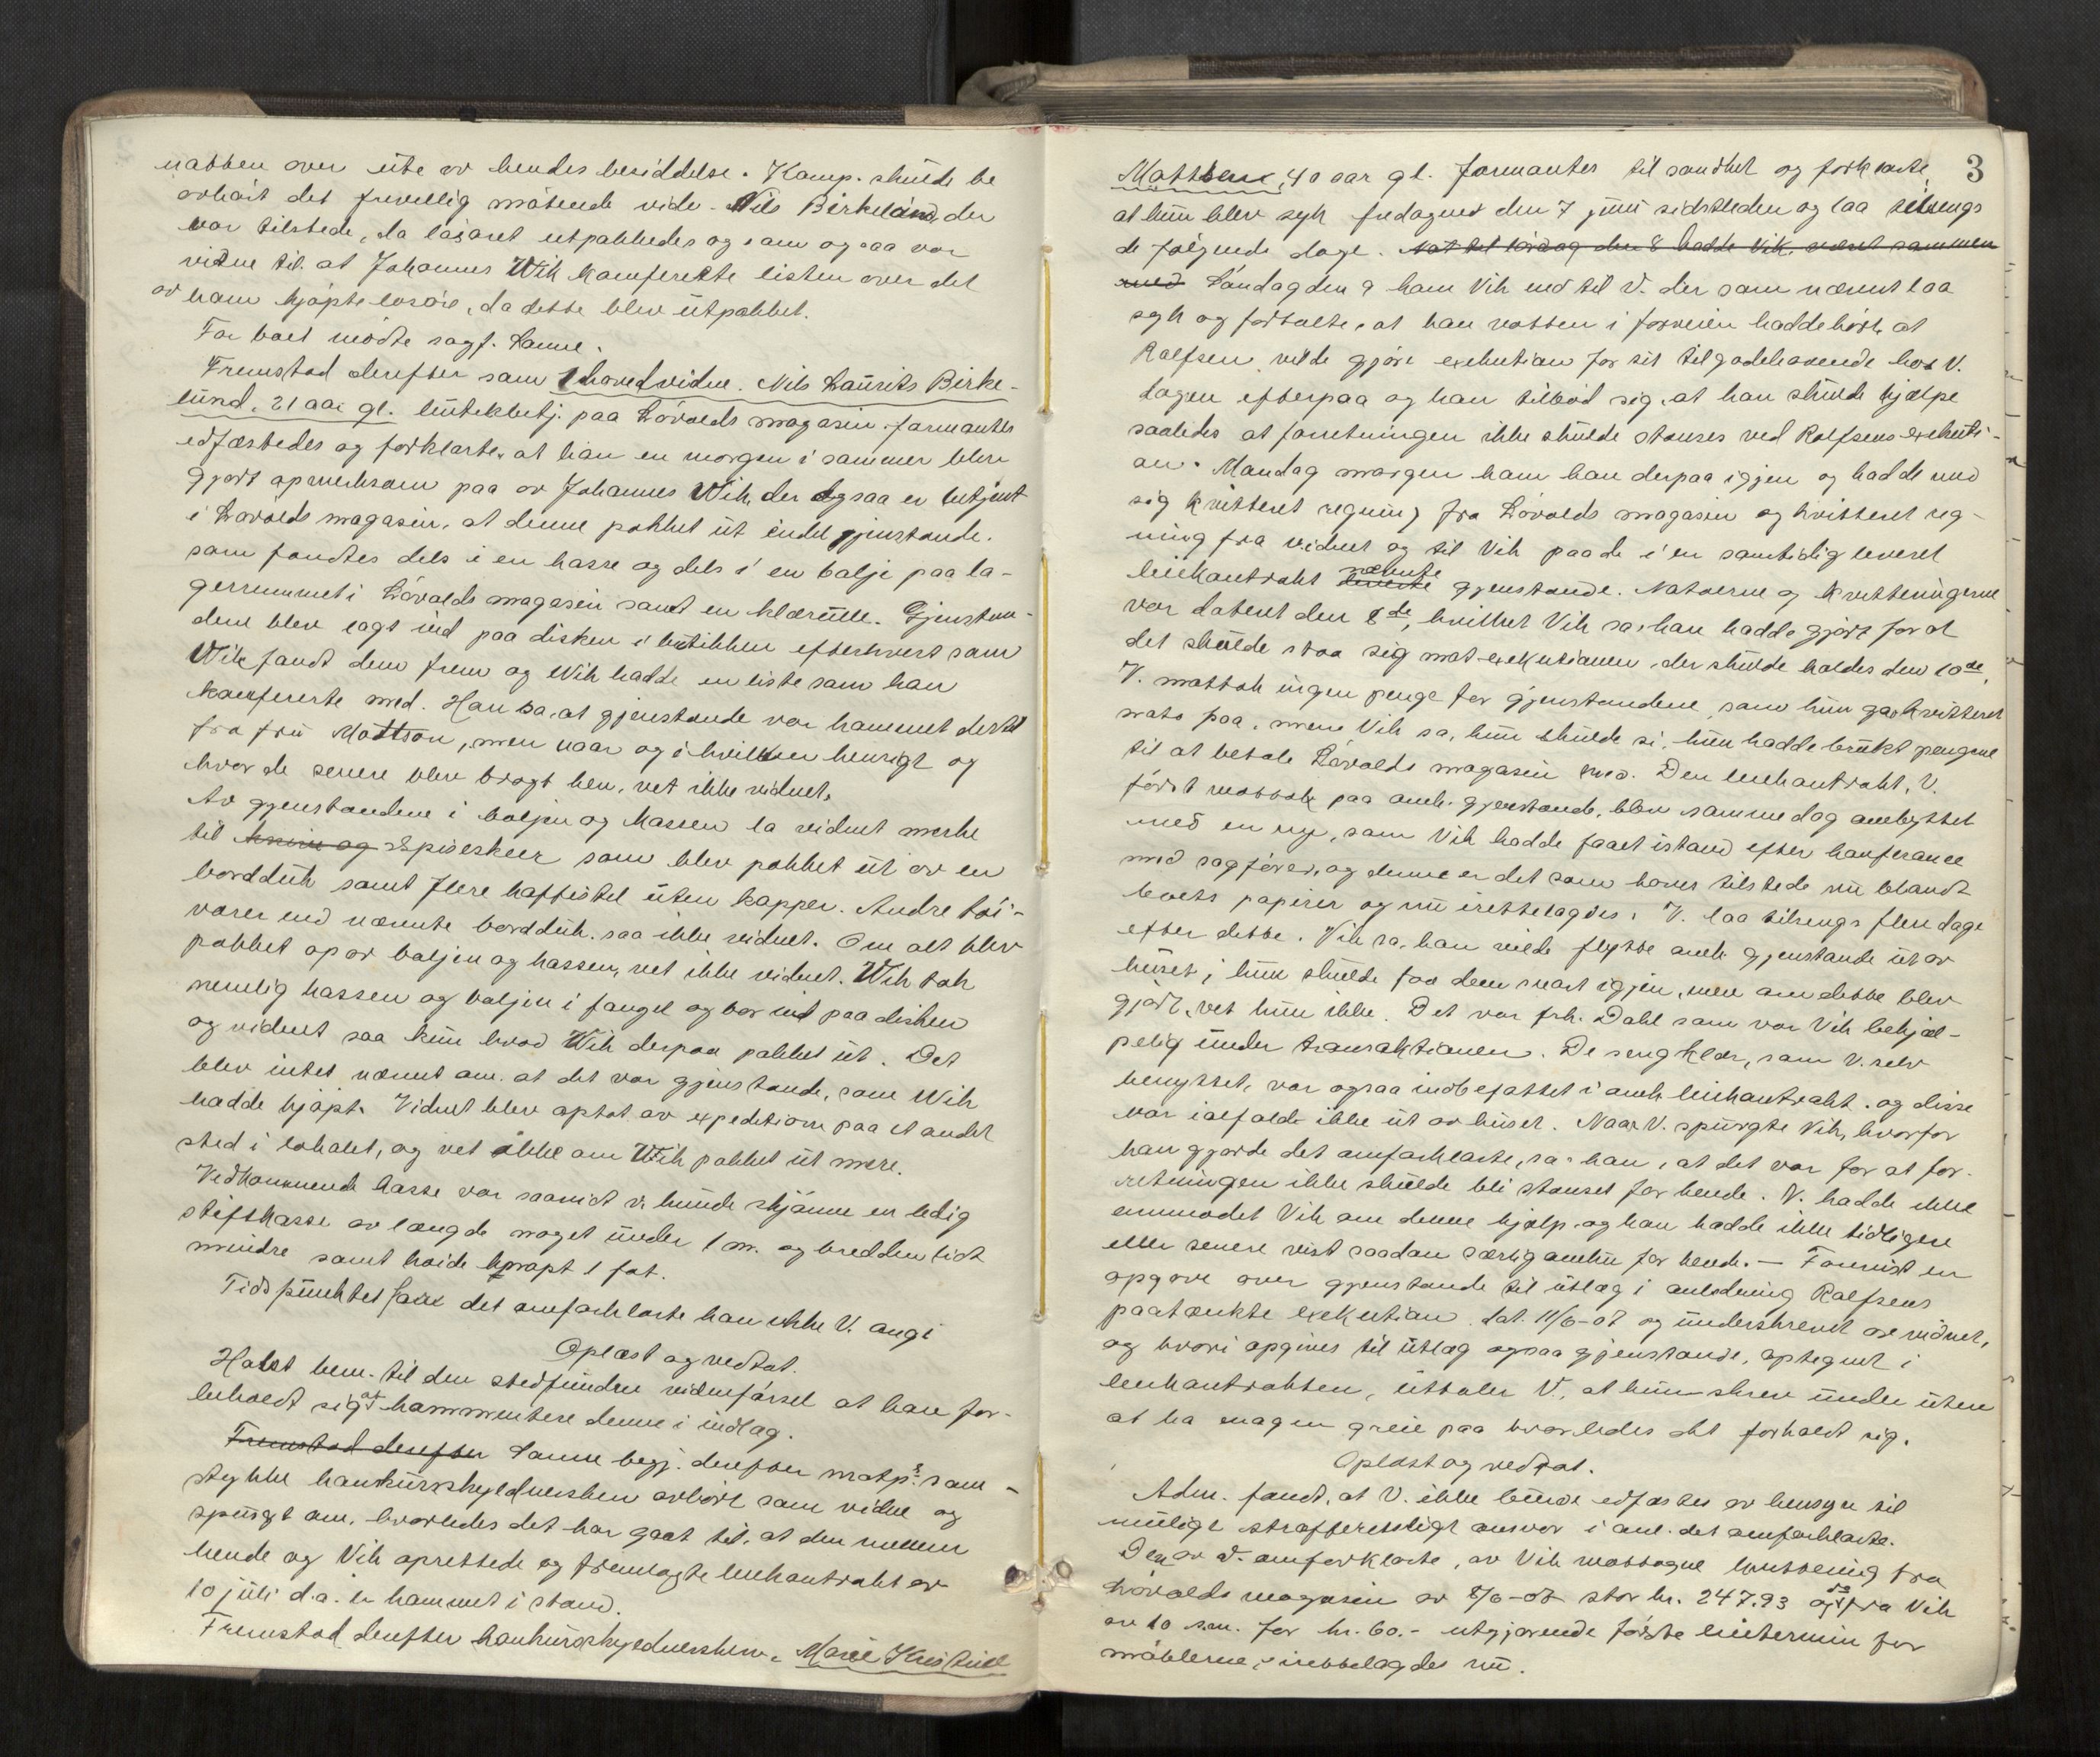 natten over ute av hendes besiddelse. Komp. skulde be
avhørt det frivillig møtende vidn. Nils Birkeland, der
var tilstede, da løsøret utpakkedes og som ogsaa var
vidne til at Johannes Wik konfererte listen over det
av ham kjøpte løsøre, da dette blev utpakket.
For boet mødte sagf. Sanne.
Fremstod derefter som 1 hovedvidne. Nils Laurits Birke-
lund, 21 aar gl. butikbetj. paa Løvolds magasin. formantes
edfæstedes og forklarte, at han en morgen i sommer blev
gjort opmerksom paa av Johannes Wik, der ogsaa er betjent
i Løvolds magasin, at denne pakket ut endel gjenstande.
som fandtes dels i en kasse og dels i en balje paa la-
gerrummet i Løvolds magasin samt en klærulle. Gjenstan-
dene blev lagt ind paa disken i butikken efterhvert som
Wik fandt dem frem og Wik hadde en liste som han
konfererte med. Han sa, at gjenstande var kommet dertil
fra fru Mattson, men naar og i hvilken hensigt og
hvor de senere blev bragt hen, vet ikke vidnet.
Av gjenstandene i baljen og kassen la vidnet merke
til knive og spiseskeer som blev pakket ut av en
bordduk samt flere kaffistel uten kopper. Andre tøi-
varer end nævnte bordduk. saa ikke vidnet. Om alt blev
pakket op av baljen og kassen, vet ikke vidnet. Wik tok
nemlig kassen og baljen i fanget og bar ind paa disken
og vidnet saa kun hvad Wik derpaa pakket ut. Det
blev intet nævnt om. at det var gjenstande, som Wik
hadde kjøpt. Vidnet blev optat av expeditionen paa et andet
sted i lokalet, og vet ikke om Wik pakket ut mere.
Vedkommende kasse var saavidt v. kunde skjønne en ledig
stiftkasse av længde noget under 1 m. og bredden lidt
mindre samt høide knapt 1 fot.
Tidspunktet for det omforklarte kan ikke V. angi
Oplæst og vedtat.
Holst bem. til den stedfundne vidneførsel at han for-
beholdt sig at kommentere denne i indlæg.
Fremstod derefter Sanne begj. derefter motp.s sam-
stykke konkursskyldnersken avhørt som vidne og
spurgt om. hvorledes det har gaat til. at den mellem
hende og Vik oprettede og fremlagte leiekontrakt av
10 juli d.a. er kommet i stand.
Fremstod derefter konkursskyldnersken. Marie Kristine
3
Mattson, 40 aar gl. Formantes til sandhet og forklarte,
at hun blev syk fredagned den 7 juni sidstleden og laa tilsengs
de følgende dage. Nat til lørdag den 8 hadde Vik. været sammen
med Søndag den 9 kom Vik ned til V. der som nævnt laa
syk og fortalte, at han natten i forveien hadde hørt, at
Rolfsen vilde gjøre exekution for sit tilgodehavende hos V.
dagen efterpaa og han tilbød sig, at han skulde hjælpe
saaledes at forretningen ikke skulde stanses ved Rolfsens exekuti-
on. Mandag morgen kom han derpaa igjen og hadde med
sig kvitteret regning fra Løvolds magasin og kvitteret reg-
ning fra vidnet og til Vik paa de i en samtidig leveret
leiekontrakt leverte nævnte gjenstande. Notaerne og kvitteringerne
var dateret den 8de, hvilket Vik sa, han hadde gjort for at
det skulde staa sig mot exekutionen, der skulde holdes den 10de.
V. mottok ingen penge for gjenstandene, som hun gav kvitteret
nota paa, men Vik sa, hun skulde si, hun hadde brukt pengene
til at betale Løvolds magasin med. Den leiekontrakt, V.
først mottok paa omh. gjenstande, blev samme dag ombyttet
med en ny, som Vik hadde faaet istand efter konferance
med sagfører, og denne er det som haves tilstede nu blandt
boets papirer og nu irettelagdes. V. laa tilsengs flere dage
efter dette. Vik sa, han vilde flytte omh. gjenstande ut av
huset; hun skulde faa dem snart igjen, men om dette blev
gjort, vet hun ikke. Det var frk. Dahl som var Vik behjæl-
pelig under transaktionen. De sengklær, som V. selv
benyttet, var ogsaa indbefattet i omh. leiekontrakt. og disse
var ialfald ikke ut av huset. Naar V. spurgte Vik, hvorfor
han gjorde det omforklarte, sa han, at det var for at for-
retningen ikke skulde bli stanset for hende. V. hadde ikke
anmodet Vik om denne hjælp. og han hadde ikke tidligere
eller senere vist saadan særlig omhu for hende. — Forevist en
opgave over gjenstande til utlæg i anledning Rolfsens
paatænkte exekution. dat. 11/6-07 og underskrevet av vidnet,
og hvori opgives til utlæg ogsaa gjenstande, optegnet i
leiekontrakten, uttaler V, at hun skrev under uten
at ha nogen greie paa hvorledes det forholdt sig.
Oplæst og vedtat.
Adm. fandt, at V. ikke burde edfæstes av hensyn til
muligt strafferetsligt ansvar i anl. det omforklarte.
Den av V. omforklarte, av Vik mottagne kvittering fra
Løvolds magasin av 8/6-07 stor kr. 247.93 og do fra Vik
av 10 s.m. for kr. 60.- utgjørende første leietermin for
møblerne, irettelagdes nu.